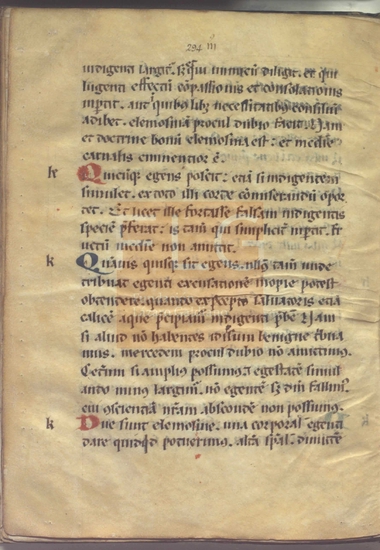 294 III
indigenti largit. Sʒ qui inimicū diligit. et qui
lugenti effectū cōpassionis et consolationis
inptit. aut in quibuslibʒ necessitatibʒ consiliū
adibet. elemosinā procul dubio facit. Nam
et doctrine bonū elemosina est: et medie
carnalis eminentior ē.
k Quicūqʒ egens poscit: etiā si indigentem
simulet. ex toto illi corde cōmiserandū opor
tet. Et licet ille fortasse falsam indigentis
speciē pferat: is tam̄ qui simpliciter inptit. fr
uctū medie non amittit.
k Quāvis quisqʒ sit egens. nllam tam̄ unde
tribuat egenti excusationē inopie potest
obtendere. quando ex precepto salvatoris etiā
calicē aque frigidā indigenti p̄bere. Nam
si aliud nō habentes id ipsum benigne tribua
mus. mercedem procul dubio nō amittimus.
Ceterum si amplius possumus: et egestatē simul
ando minus largimur. nō egentē sʒ dm̄ fallimur.
cui conscientiā nrām abscondere non possumus.
k Due sunt elemosine. una corporalis egenti
dare quidqd potueris. altera spālis. dimittere